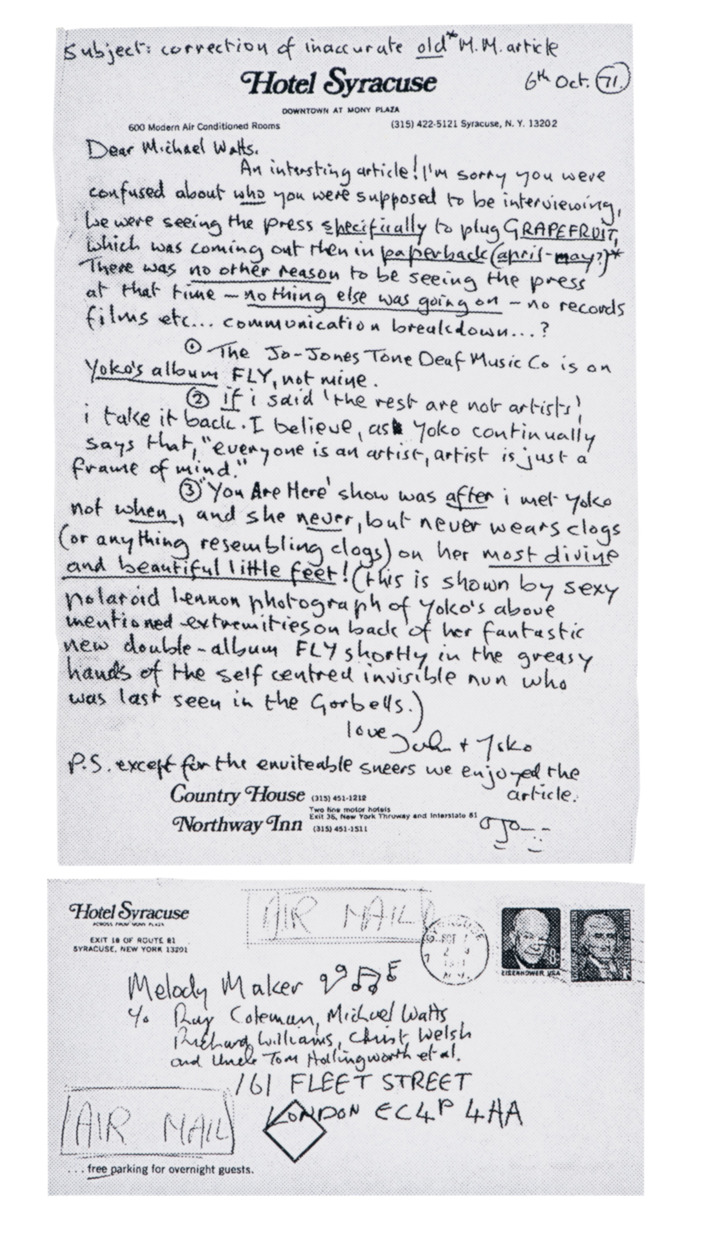 Subject: correction of inaccurate old* M.M. article
Hotel Syracuse
6th Oct. 71.
DOWNTOWN AT MONY PLAZA
600 Modern Air Conditioned Rooms
(315) 422-5121 Syracuse, N. Y. 13202
Dear Michael Watts.
An intersting article! I'm sorry you were
confused about who you were supposed to be interviewing,
we were seeing the press specifically to plug GRAPEFRUIT,
which was coming out then in paperback (april-may?)*
There was no other reason to be seeing the press
at that time – nothing else was going on – no records
films etc... communication breakdown...?
① The Jo-Jones Tone Deaf Music Co is on
Yoko's album FLY, not mine.
② if i said 'the rest are not artists',
i take it back. I believe, as Yoko continually
says that, "everyone is an artist, artist is just a
frame of mind."
③ 'You Are Here' show was after i met Yoko
not when, and she never, but never wears clogs
(or anything resembling clogs) on her most divine
and beautiful little feet! (this is shown by sexy
polaroid lennon photograph of Yoko's above
mentioned extremities on back of her fantastic
new double-album FLY shortly in the greasy
hands of the self centred invisible nun who
was last seen in the Gorbells.)
love John + Yoko
P.S. except for the enviteable sneers we enjoyed the
article.
Country House (315) 451-1212
Two fine motor hotels
Exit 36, New York Thruway and Interstate 81
Northway Inn (315) 451-1511
Hotel Syracuse
ACROSS FROM MONY PLAZA
EXIT 18 OF ROUTE 81
SYRACUSE, NEW YORK 13201
AIR MAIL
EISENHOWER USA
Melody Maker
c/o Ray Coleman, Michael Watts
Richard Williams, Christ Welsh
and Uncle Tom Hollingworth et al.
161 FLEET STREET
LONDON EC4P 4HA
AIR MAIL
... free parking for overnight guests.